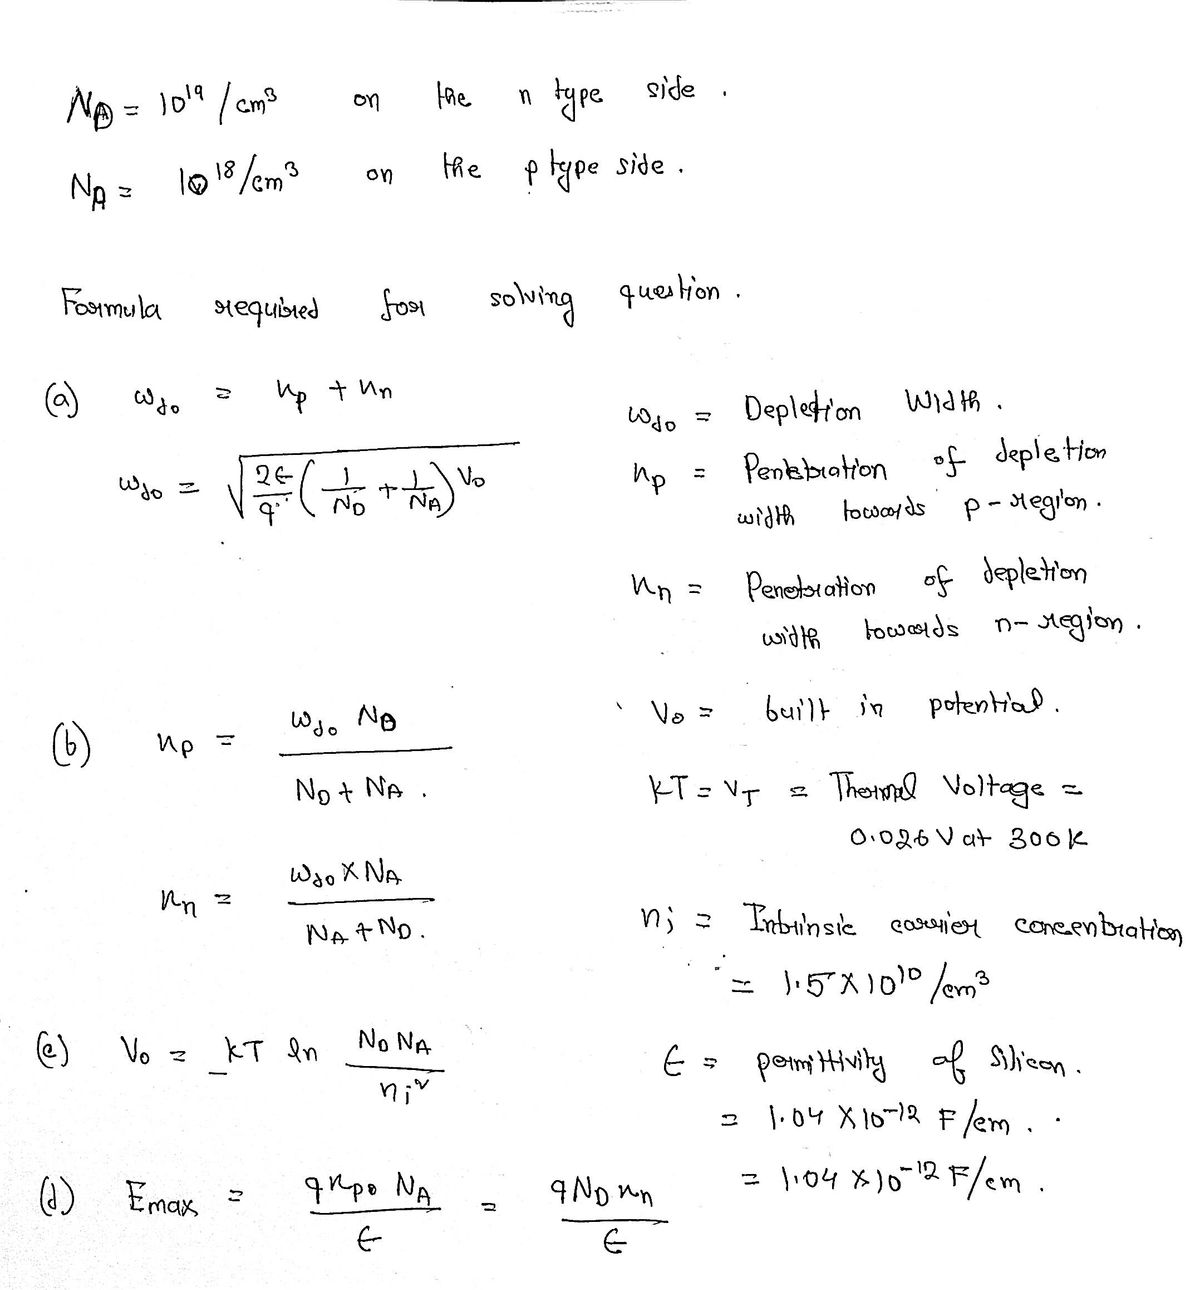 N_D = 10^19 /cm^3 on the n type side.
N_A = 10^18/cm^3 on the p type side.
Formula required for solving question.
(a) w_do = x_p + x_n
w_do = √(2ϵ/q (1/N_D + 1/N_A) V_0)
w_do = Depletion Width.
x_p = Penetration of depletion
width towards p-region.
x_n = Penetration of depletion
width towards n-region.
V_0 = built in potential.
(b) x_p = w_do N_D / N_D + N_A.
KT = V_T = Thermal Voltage =
0.026 V at 300 K
x_n = w_do X N_A / N_A + N_D.
n_i = Intrinsic carrier concentration
= 1.5 X 10^10 /cm^3
(c) V_0 = KT ln N_D N_A / n_i^2
ϵ = permittivity of Silicon.
= 1.04 X 10^-12 F/cm.
(d) E_max = q x_p0 N_A / ϵ = q N_D x_n / ϵ
= 1.04 X 10^-12 F/cm.